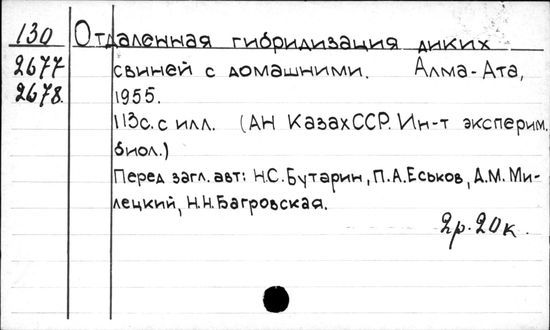 130 Отдаленная гибридизация диких
2677 свиней с домашними. Алма-Ата,
2678. 1955.
113с. с илл. (АН КазахССР. Ин-т эксперим.
биол.)
Перед загл. авт: Н.С. Бутарин, П.А. Еськов, Д.М. Ми-
лецкий, Н.Н. Багровская.
2р. 20к.